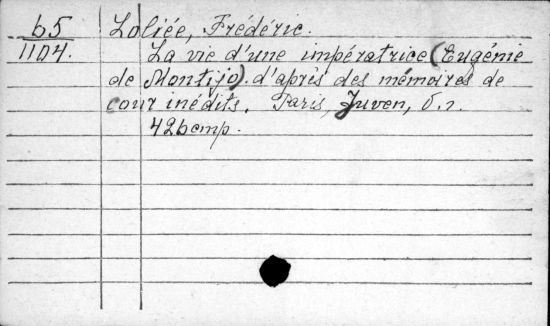 65 Loliée, Frédéric.
1104. La vie d'une impératrice (Eugénie
de Montijo) d'après des mémoires de
cour inédits. Paris, Juven,
426 стр.